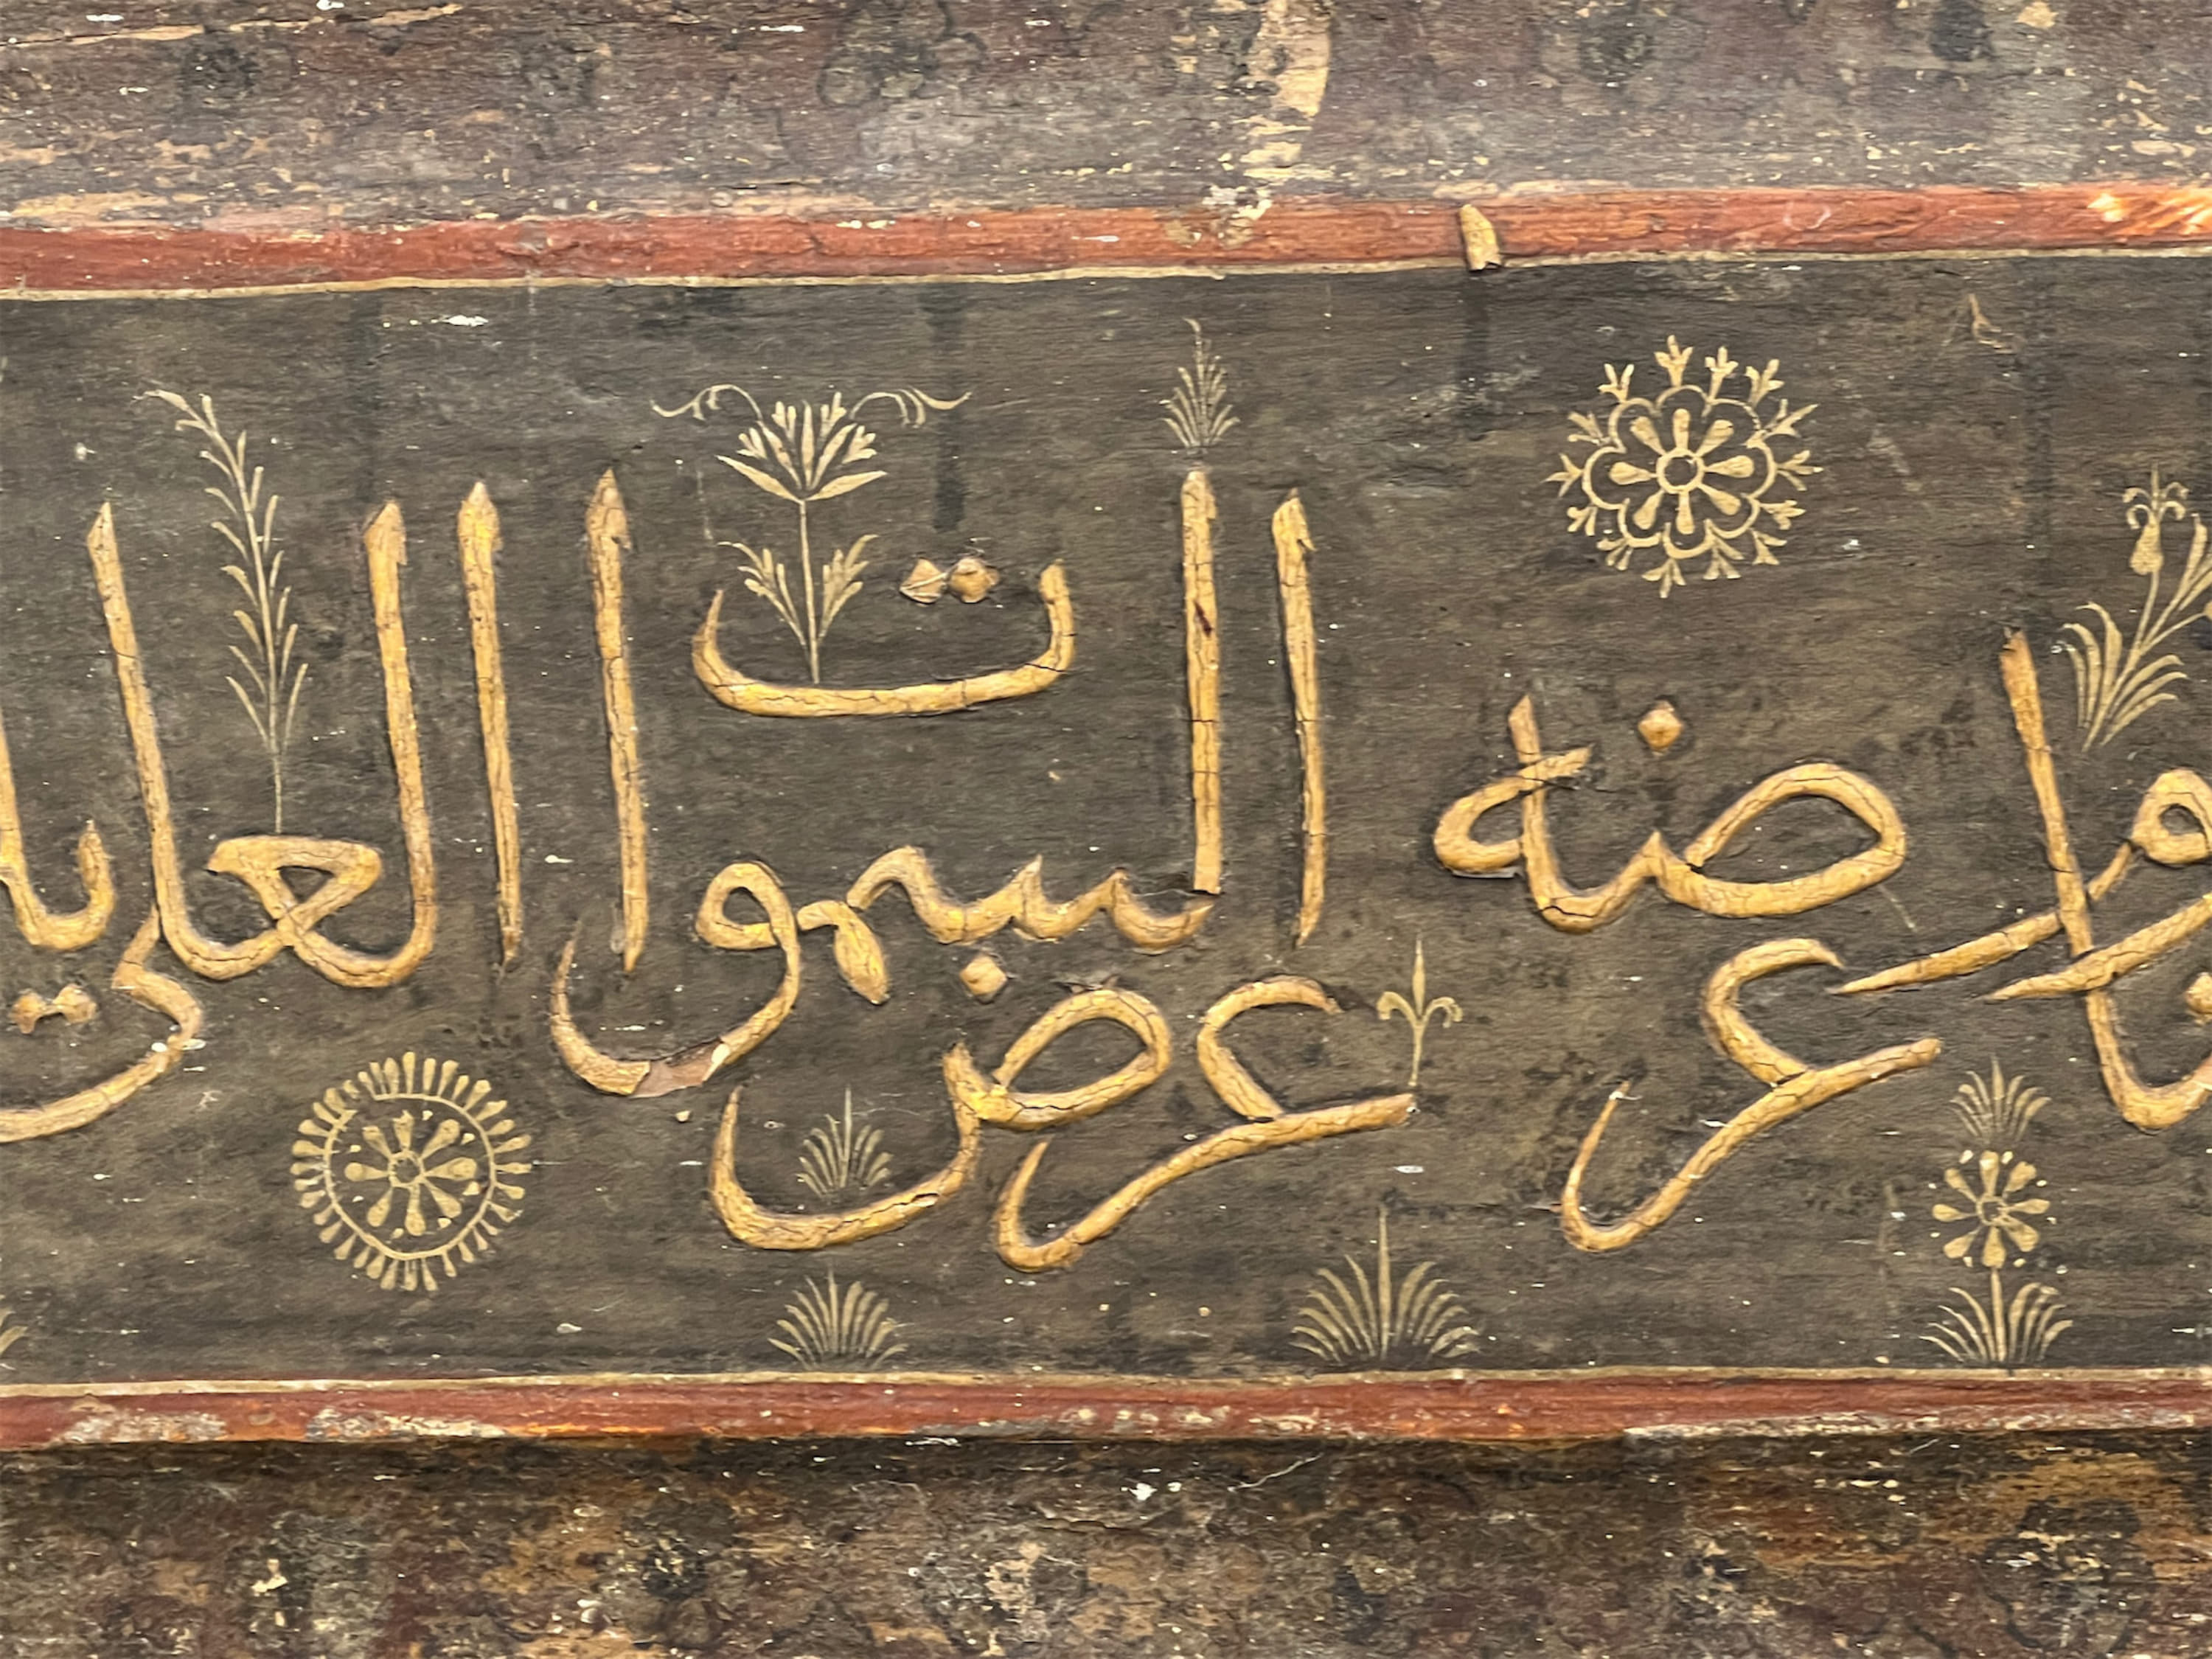 عرضه عرض السموات العلى